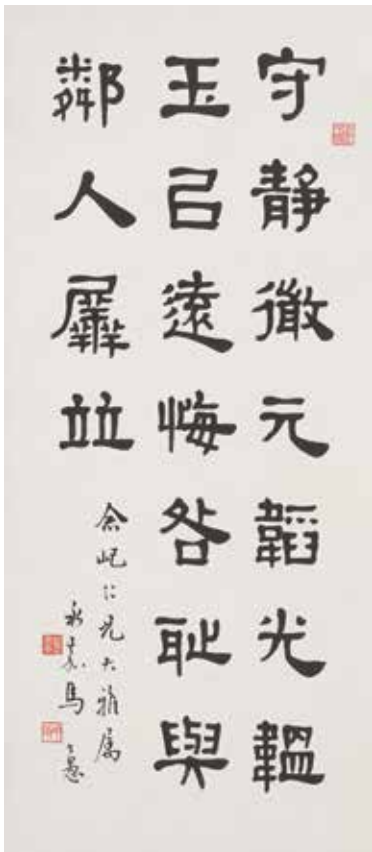 守靜微元韜光韞
玉㠯遠悔咎耻與
鄰人羼竝
念屺仁兄大雅属
永嘉馬公愚